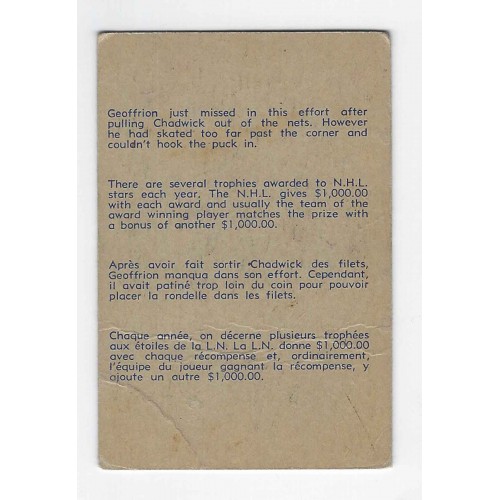 Geoffrion just missed in this effort after
pulling Chadwick out of the nets. However
he had skated too far past the corner and
couldn't hook the puck in.
There are several trophies awarded to N.H.L.
stars each year. The N.H.L. gives $1,000.00
with each award and usually the team of the
award winning player matches the prize with
a bonus of another $1,000.00.
Après avoir fait sortir Chadwick des filets,
Geoffrion manqua dans son effort. Cependant,
il avait patiné trop loin du coin pour pouvoir
placer la rondelle dans les filets.
Chaque année, on décerne plusieurs trophées
aux étoiles de la L.N. La L.N. donne $1,000.00
avec chaque récompense et, ordinairement,
l'équipe du joueur gagnant la récompense, y
ajoute un autre $1,000.00.